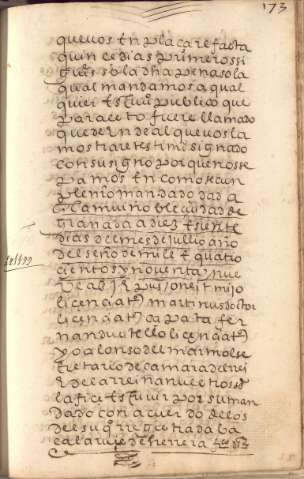 173
que vos enplaçare fasta
quinçe dias primeros si
guie͠s so la dha pena so la
qual mandamos a qual
quier escriuano publico que
para esto fuere llamado
que de ende al que vos la
mostrare testimo signado
con su signo porque nos se
pamos en como se cun
ple nro mandado dada
en la muy noble ciudad de
granada a diez e siete
dias del mes de jullio año
del señor de mill e quatro
cientos y noventa y nueve
licenciatus martinus doctor
licenciatus çapata fer
nandus tello licenciatus
yo alonso del marmol se
cretario de camara del rei
e de la reina nuestros s
la fice escriuir por su man
dado con acuerdo de los
del su qº registrada ba
calarius de herrera